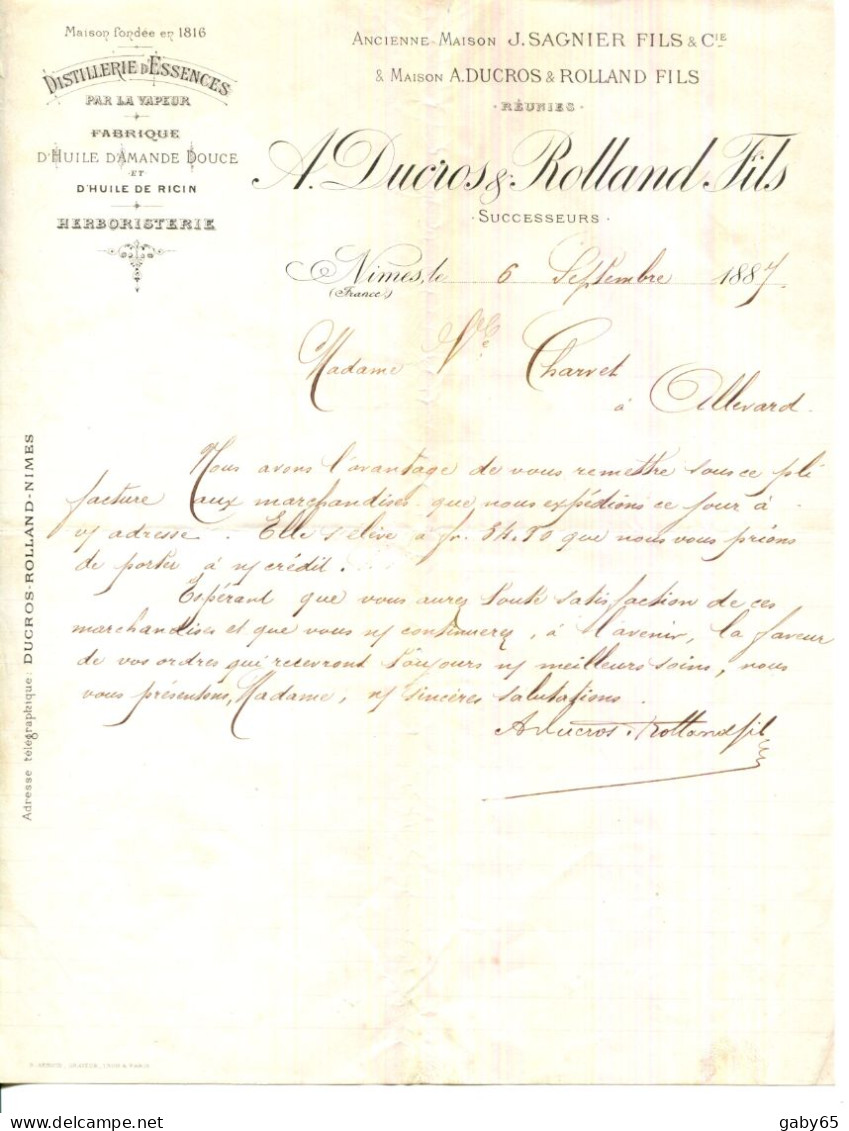 Maison fondée en 1816
DISTILLERIE D'ESSENCES
PAR LA VAPEUR
FABRIQUE
D'HUILE D'AMANDE DOUCE
ET
D'HUILE DE RICIN
HERBORISTERIE
ANCIENNE MAISON J. SAGNIER FILS & CIE
& MAISON A. DUCROS & ROLLAND FILS
· RÉUNIES ·
A. Ducros & Rolland Fils
· SUCCESSEURS ·
Nimes, le 6 Septembre 1887
(France)
Madame Ve Charvet
à Allevard.
Nous avons l'avantage de vous remettre sous ce pli
facture aux marchandises que nous expédions ce jour à
v/ adresse. Elle s'élève à fr. 54.90 que nous vous prions
de porter à n/ crédit.
Espérant que vous aurez toute satisfaction de ces
marchandises et que vous n/ continuerez, à l'avenir, la faveur
de vos ordres qui recevront toujours n/ meilleurs soins, nous
vous présentons, Madame, n/ sincères salutations.
A Ducros & Rolland fils
Adresse télégraphique: DUCROS-ROLLAND-NIMES
delcampe.net
gaby65